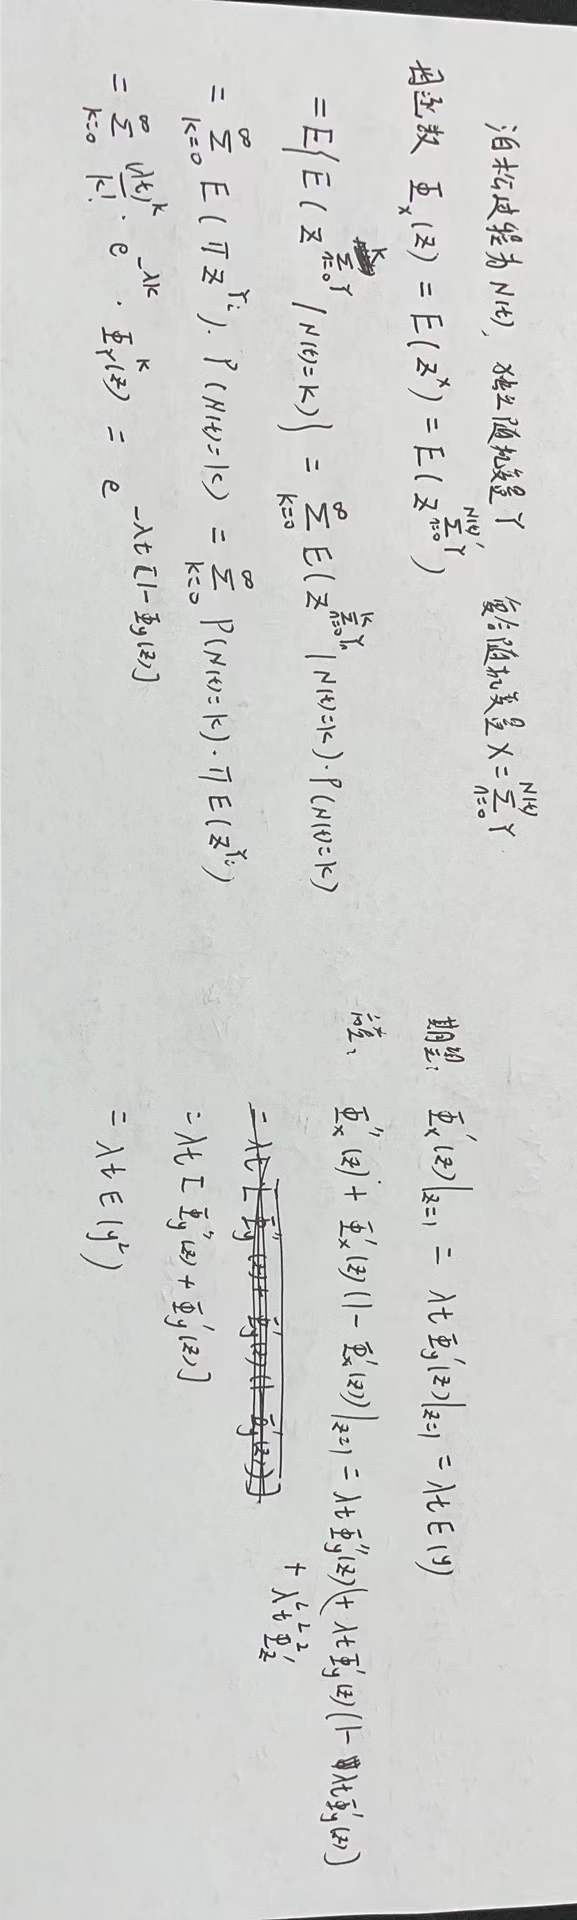 泊松过程为 N(t), 独立随机变量 Y 复合随机变量 X = Σ_{n=0}^{N(t)} Y.
母函数 Φ_x(z) = E(z^x) = E(z^{Σ_{n=0}^{N(t)} Y})
= E{E(z^{Σ_{n=0}^{k} Y} / N(t)=k)} = Σ_{k=0}^{∞} E(z^{Σ_{n=0}^{k} Y_n} / N(t)=k)·P(N(t)=k)
= Σ_{k=0}^{∞} E(π z^{Y_i})·P(N(t)=k) = Σ_{k=0}^{∞} P(N(t)=k)·π E(z^{Y_i})
= Σ_{k=0}^{∞} (λt)^k / k! · e^{-λk} · Φ_Y^k(z) = e^{-λt[1-Φ_y(z)]}
期望: Φ_x'(z)|_{z=1} = λt Φ_y'(z)|_{z=1} = λt E(y)
Φ_x''(z) + Φ_x'(z)(1-Φ_x'(z))|_{z=1} = λt Φ_y''(z) + λt Φ_y'(z)(1-λt Φ_y'(z))
+ λ²t²Φ_z'^2
= λt[Φ_y''(z) + Φ_y'(z)(1-Φ_y'(z))]
= λt[Φ_y''(z) + Φ_y'(z)]
= λt E(y²)